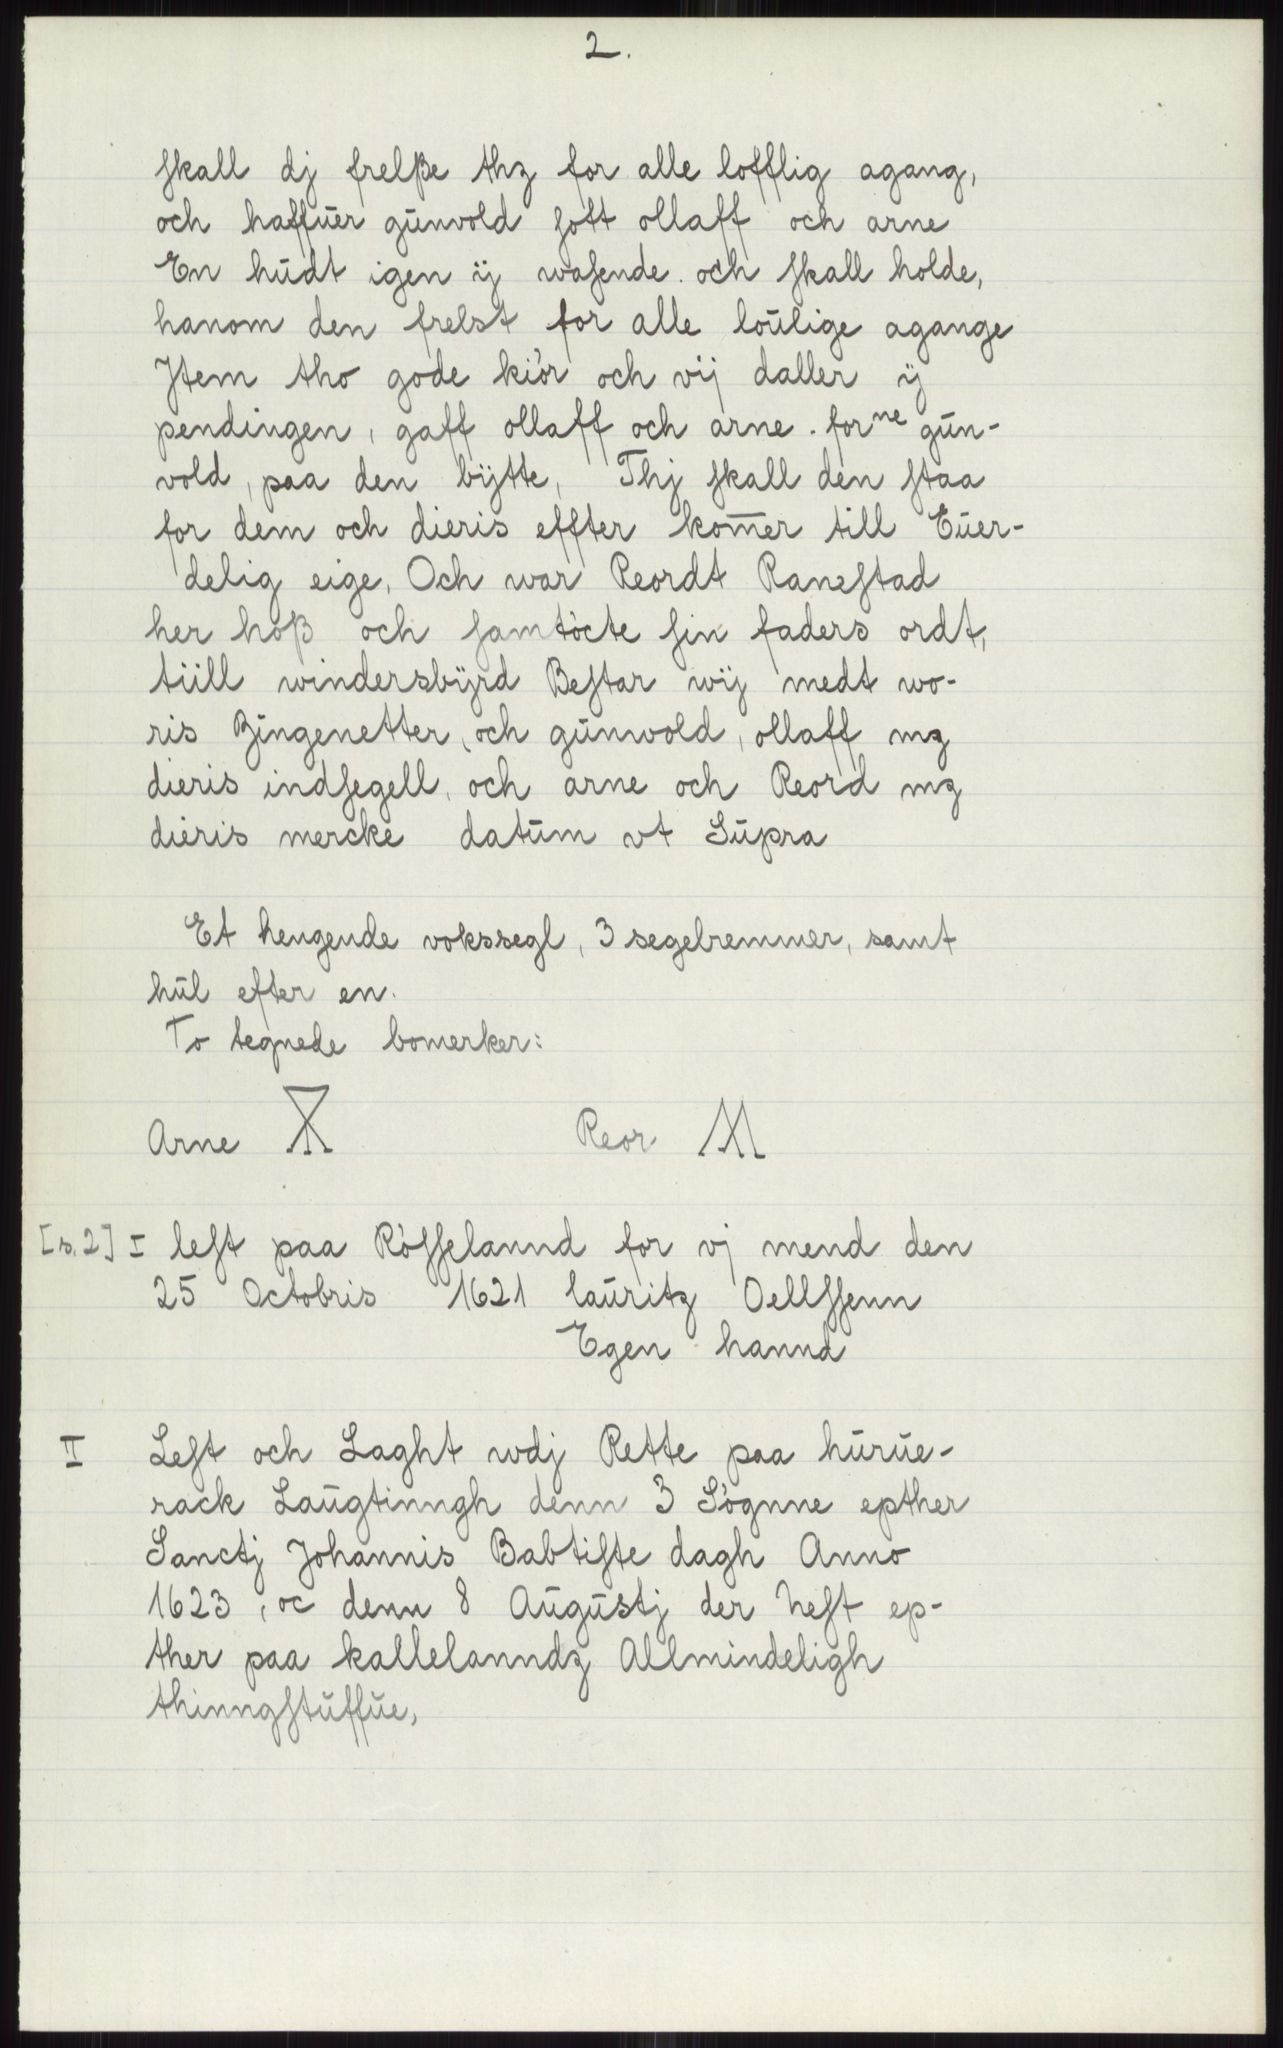 2.
skall dj frelße thz for alle lofflig agang,
och haffuer gunvold fott ollaff och arne
En hudt igen ÿ wasende. och skall holde,
hanom den frelst for alle loulige agange
Jtem tho gode kiór och vij daller ÿ
pendingen, gaff ollaff och arne. forne gun-
vold, paa den bÿtte, Thj skall den staa
for dem och dieris effter kom̅er till Euer-
delig eige, Och war Reordt Ranestad
her hoß och samtócte sin faders ordt,
tiill windersbÿrd Bestar wÿ medt wo-
ris Zingenetter, och gunwold, ollaff mz
dieris indsegell, och arne och Reord mz
dieris mercke datum vt Supra
Et hengende vokssegl, 3 segelremmer, samt
hul efter en.
To tegnede bomerker:
Arne Reor
[s. 2] I lest paa Rósselannd for vj mend den
25 Octobris 1621 lauritz Oellssenn
Egen hannd
II Lest och Laght wdj Rette paa hurue-
rack Laugtinngh denn 3 Sógnne epther
Sanctj Johannis Babtiste dagh Anno
1623, oc denn 8 Augustj der hest ep-
ther paa kallelanndz Allmindeligh
thinngstuffue,